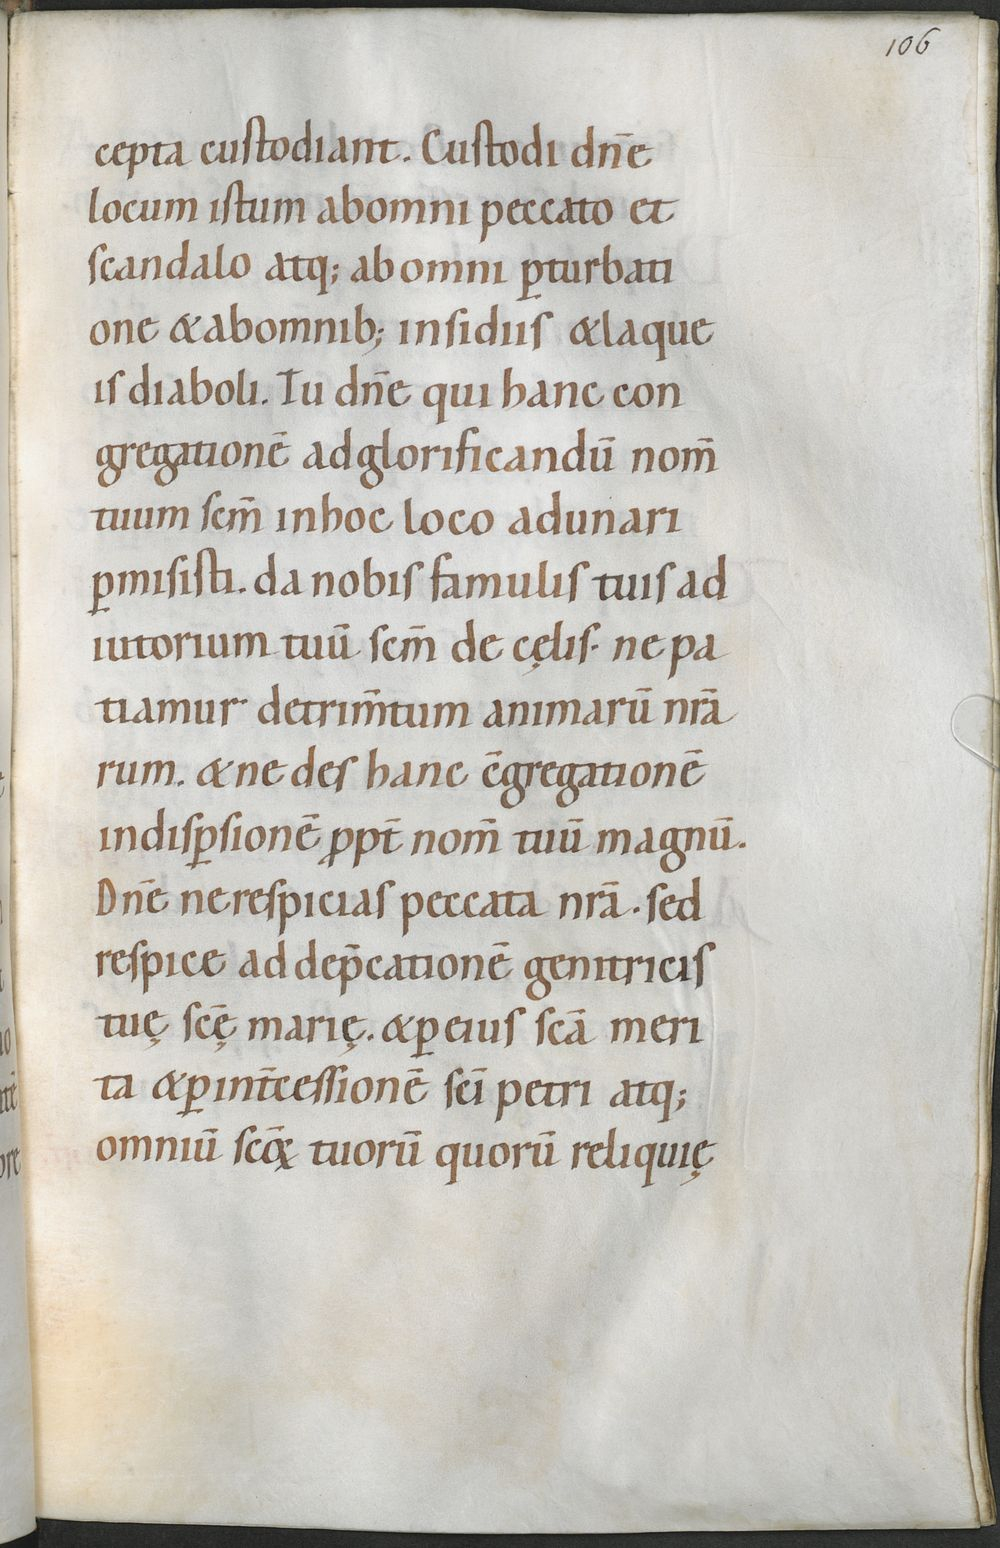 106
cepta custodiant. Custodi dñe
locum istum abomni peccato et
scandalo atq; abomni ꝑturbati
one &abomnib; insidiis &laque
is diaboli. Tu dñe qui hanc con
gregationē adglorificandū nom̄
tuum scm̄ inhoc loco adunari
ꝑmisisti. da nobis famulis tuis ad
iutorium tuū scm̄ de cęlis. ne pa
tiamur detrim̄tum animarū nrā
rum. &ne des hanc c̄gregationē
indisꝑsionē ꝓpt̄ nom̄ tuū magnū.
Dñe nerespicias peccata nrā. sed
respice ad dep̄cationē genitricis
tuę scę̄ marię. &ꝑ eius scā meri
ta &ꝑ int̄cessionē scī petri atq;
omniū scōꝝ tuorū quorū reliquię